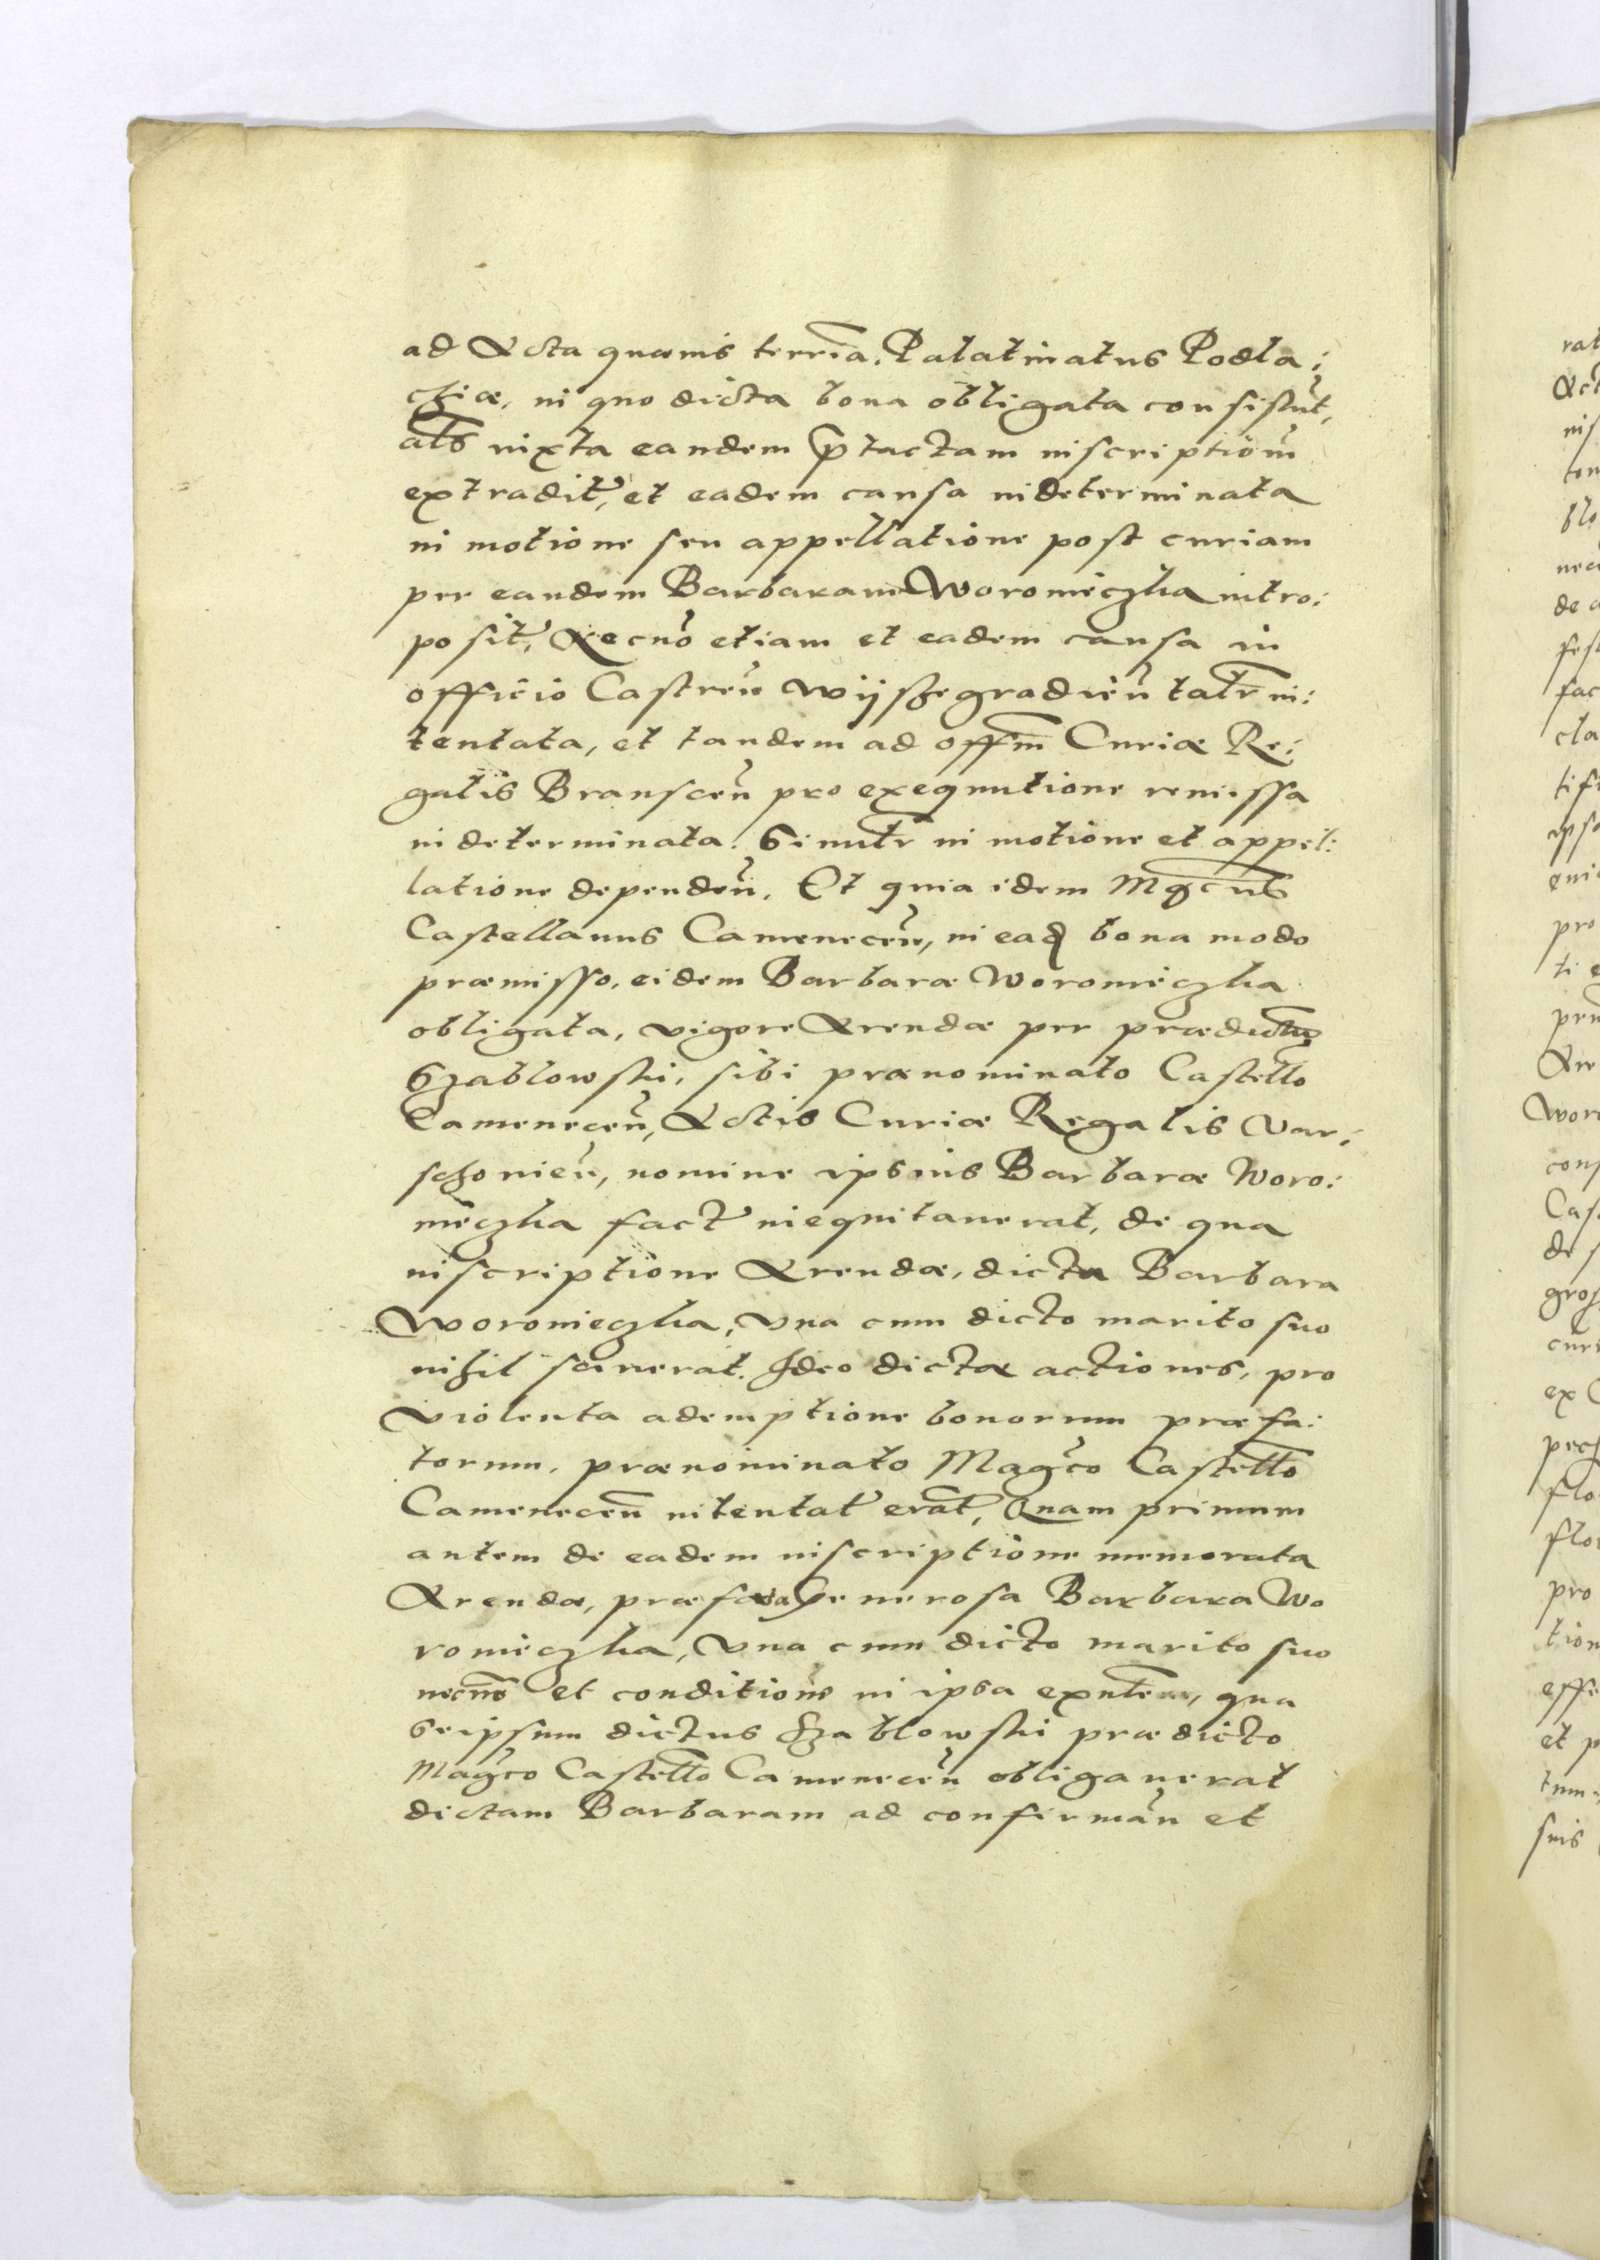 ad Acta quævis terria. Palatinatus Podla:
chiæ, in quo dicta bona obligata consistūt,
als iuxta eandem p̄tactam inscriptiom̄
extradit, et eadem causa indeterminata
in motione seu appellatione post curiam
per eandem Barbaram Woroniećzka intro:
posit, Necnō etiam et eadem causa in
officio Castreñ Wijschegradieñ talr̄ in:
tentata, et tandem ad offm̄ Curiæ Re:
galis Bransceñ pro exequutione remissa
indeterminata. Simulr̄ in motione et appel:
latione dependeñ. Et quia idem Mgcus
Castellanus Cameneceñ, in eadq bona modo
præmisso, eidem Barbaræ Woronieczka
obligata, vigore Arendæ per prædictū
Szablowski, sibi prænominato Castello
Cameneceñ, Actis Curiæ Regalis Var:
schonieñ, nomine ipsius Barbaræ Woro:
nieczka fact inequitauerat, de qua
inscriptione Arendæ, dicta Barbara
Woronieczka, una cum dicto marito suo
nihil sciuerat. Ideo dictæ actiones, pro
violenta ademptione bonorum præfa:
torum, prænominato Magco Castello
Cameneceñ intentat erāt, Quam primum
autem de eadem inscriptione memorata
Arendæ, præfata Generosa Barbara Wo
ronieczka, una cum dicto marito suo
necnō et conditione in ipsa exnteñ, qua
seipsum dictus Szablowski prædicto
Magco Castello Cameneceñ obligauerat
dictam Barbaram ad confirmañ et